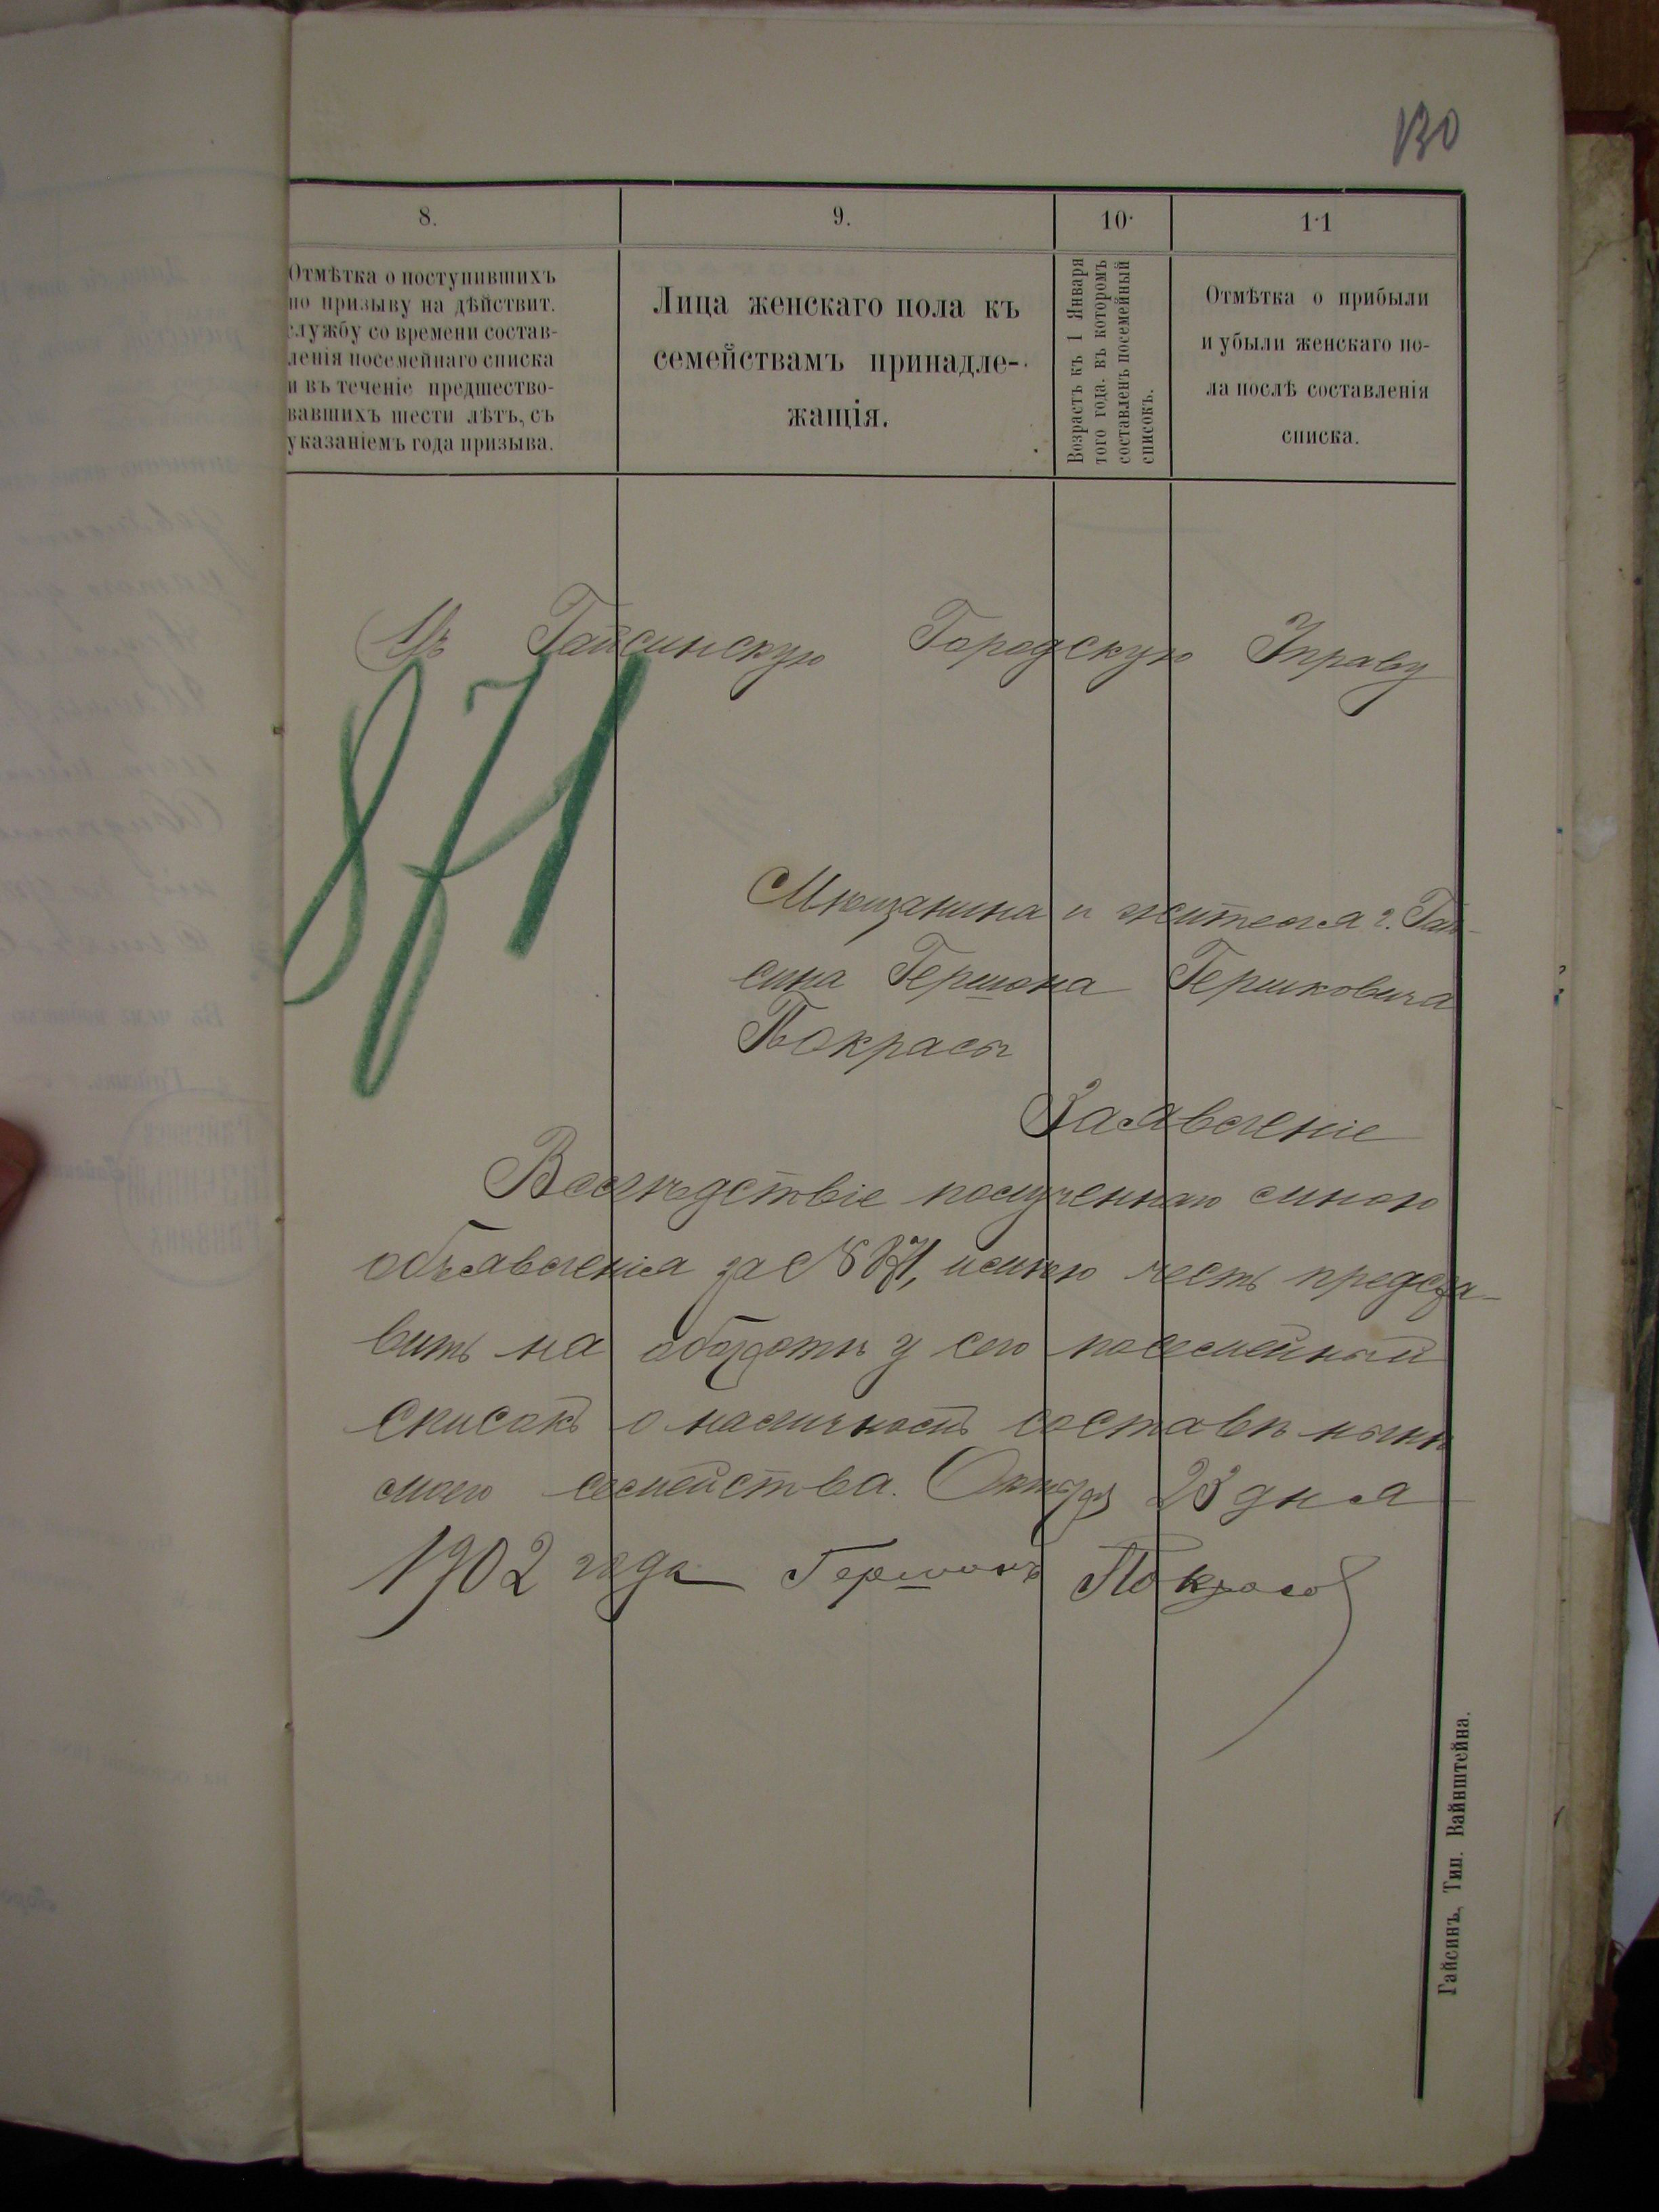 130
8.
9.
10.
11
Отмѣтка о поступившихъ
по призыву на дѣйствит.
службу со времени состав-
ленія посемейнаго списка
и въ теченіе предшество-
вавшихъ шести лѣтъ, съ
указаніемъ года призыва.
Лица женскаго пола къ
семействамъ принадле-
жащія.
Возрастъ къ 1 Января
того года. въ которомъ
составленъ посемейный
списокъ.
Отмѣтка о прибыли
и убыли женскаго по-
ла послѣ составленія
списка.
Въ Гайсинскую Городскую Управу
871
Мѣщанина и жителя г. Гай-
сина Гершона Гершковича
Покрасъ
Заявленіе
Вслѣдствіе полученнаго мною
объявленія за № 871, имѣю честь предста-
вить на оборотѣ у сего посемейный
списокъ о наличность составѣ нынѣ
моего семейства. 23 дня
1902 года Гершонъ Покрасъ
Гайсинъ, Тип. Вайнштейна.